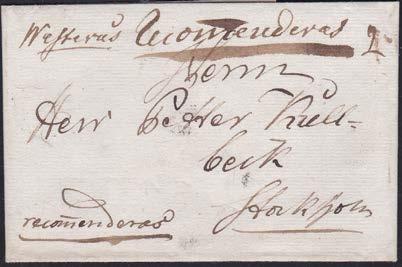 Westerås Recomenderas 2
Herrn
Herr Petter Küll-
beck
Stockholm
recom̄enderas